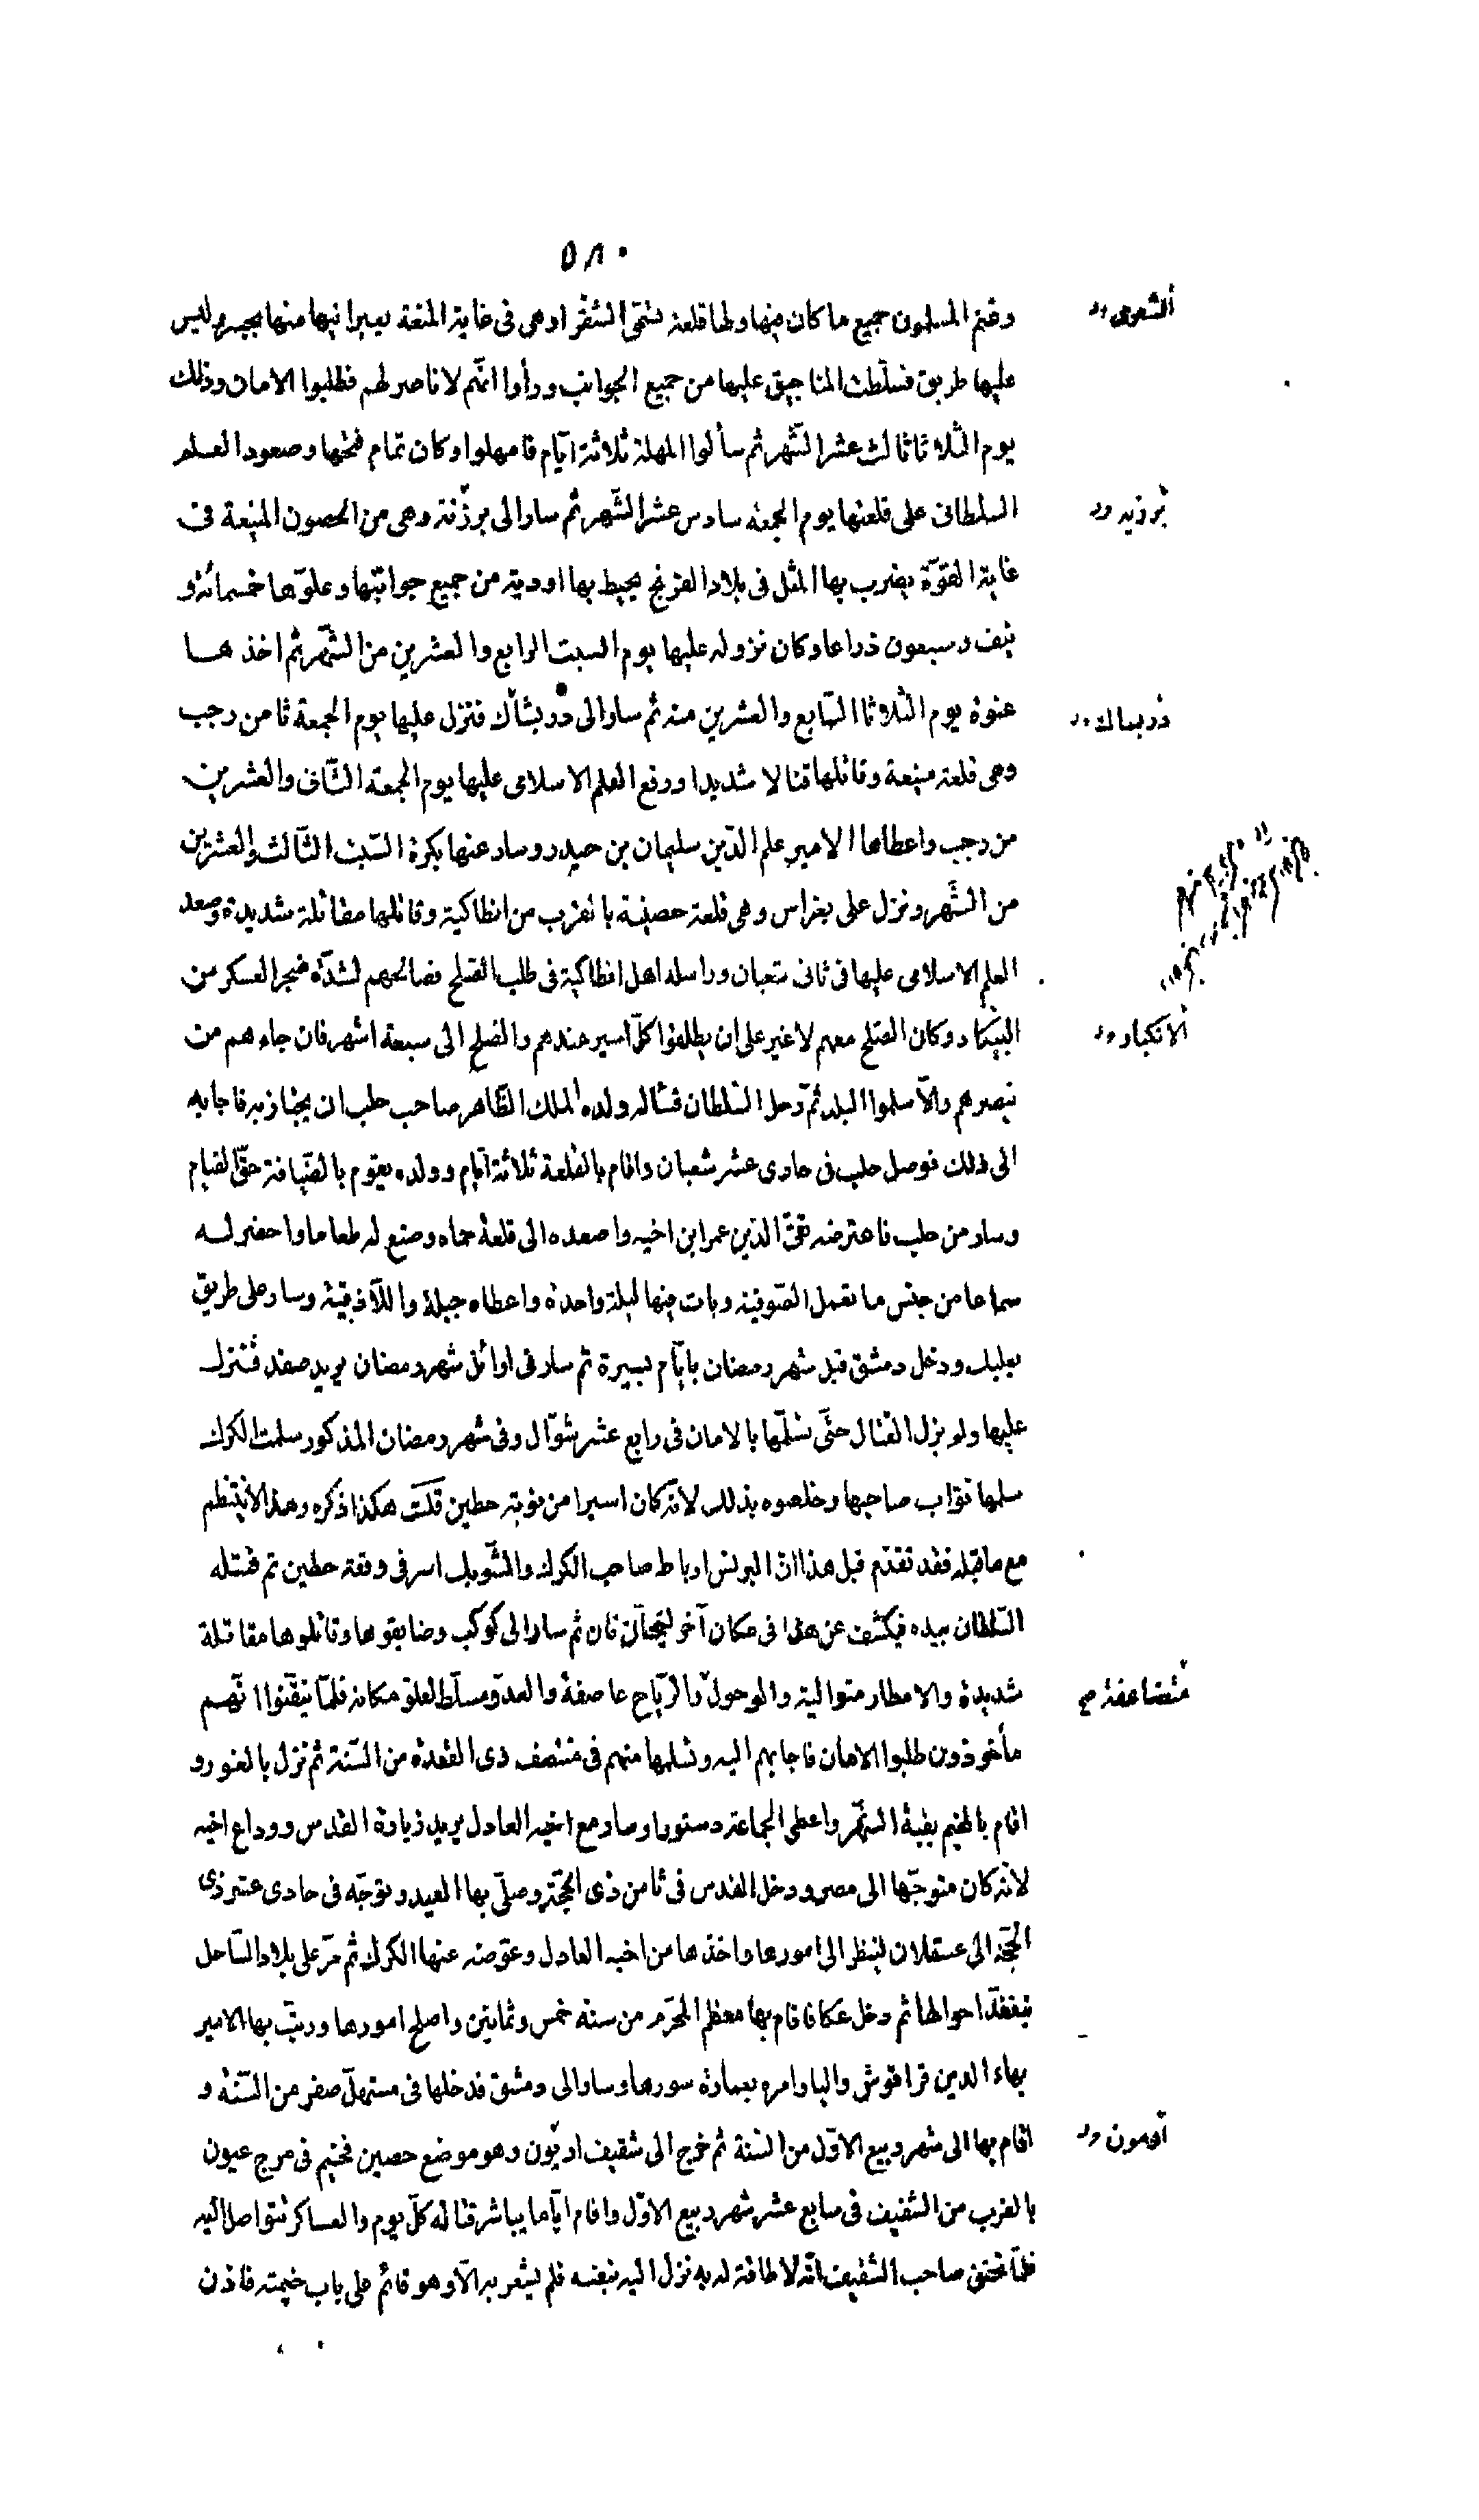 ٥٨٠
وغنم المسلمون جميع ما كان فيها ولها قلعة تسمّى الشغر اوهى فى غاية المنعة يعبر اليها منها بجسر وليس
عليها طريق فسلّطت المناجيق عليها من جميع الجوانب ورأوا انّهم لا ناصر لهم فطلبوا الامان وذلك
يوم الثلاثا ثالث عشر الشّهر ثم سألوا المهلة ثلاثة ايّام فامهلوا وكان تمام فتحها وصعود العلم
السلطانى على قلعتها يوم الجمعه سادس عشر الشّهر ثم سار الى برزنة وهى من الحصون المنيعة فى
غاية القوّة يضرب بها المثل فى بلاد الفرنج يحيط بها اودية من جميع جوانبها وعلوّها خمسمائة و
نيف وسبعون ذراعا وكان نزوله عليها يوم السبت الرابع والعشرين من الشّهر ثم اخذها
عنوة يوم الثلاثا السّابع والعشرين منه ثم سار الى دربشاك فنزل عليها يوم الجمعة ثامن رجب
وهى قلعة منيعة وقاتلها قتالا شديدا ورفع العلم الاسلامى عليها يوم الجمعة الثّانى والعشرين
من رجب واعطاها الامير علم الدّين سليمان بن حيدر وسار عنها بكرة السّبت الثّالث والعشرين
من الشّهر ونزل على بغراس وهى قلعة حصينة بالقرب من انطاكية وقاتلها مقاتلة شديدة وصعد
العلم الاسلامى عليها فى ثانى شعبان وراسله اهل انطاكية فى طلب الصّلح فصالحهم لشدّة ضجر العسكر من
البيكار وكان الصّلح معهم لا غير على ان يطلقوا كلّ اسير عندهم والصّلح الى سبعة اشهر فان جاءهم من
ينصرهم والّا سلموا البلد ثمّ رحل السّلطان فسأله ولده الملك الظّاهر صاحب حلب ان يجتاز به فاجابه
الى ذلك فوصل حلب فى حادى عشر شعبان واقام بالقلعة ثلاثة ايّام وولده يقوم بالضّيافة حقّ القيام
وسار من حلب فاعترضه تقىّ الدّين عمر ابن اخيه واصعده الى قلعة حماه وصنع له طعاما واحضر له
سماعا من جنس ما تعمل الصّوفية وبات فيها ليلة واحدة واعطاه جبلة واللّاذقية وسار على طريق
بعلبك ودخل دمشق قبل شهر رمضان بايّام يسيرة ثم سار فى اوائل شهر رمضان يريد صفد فنزل
عليها ولم يزل القتال حتّى تسلّمها بالامان فى رابع عشر شوّال وفى شهر رمضان المذكور سلمت الكرك
سلمها نوّاب صاحبها وخلصوه بذلك لانّه كان اسيرا من نوبة حطين قلت هكذا ذكره وهذا لا ينتظم
مع ما قبله فقد تقدّم قبل هذا انّ البرنس ارناط صاحب الكرك والشّوبك اسر فى وقعة حطين ثم قتله
السّلطان بيده فيكشف عن هذا فى مكان آخر ثم سار الى كوكب وضايقوها وقاتلوها مقاتلة
شديدة والامطار متوالية والوحول والرّياح عاصفة والعدوّ مسلّط لعلوّ مكانه فلمّا تيقّنوا انّهم
مأخوذون طلبوا الامان فاجابهم اليه وتسلمها منهم فى منتصف ذى القعدة من السّنة ثم نزل بالغور و
اقام بالمخيم بقيّة الشّهر واعطى الجماعة دستورا وسار مع اخيه العادل يريد زيارة القدس ووداع اخيه
لانّه كان متوجّها الى مصر ودخل القدس فى ثامن ذى الحجّة وصلّى بها العيد وتوجّه فى حادى عشر ذى
الحجّة الى عسقلان لينظر الى امورها واخذها من اخيه العادل وعوّضه عنها الكرك ثم مرّ على بلاد السّاحل
يتفقّد احوالها ثم دخل عكا فاقام بها معظم المحرّم من سنة خمس وثمانين واصلح امورها ورتّب بها الامير
بهاء الدين قراقوش واليا وامره بعمارة سورها وسار الى دمشق فدخلها فى مستهلّ صفر من السّنة و
اقام بها الى شهر ربيع الاوّل من السّنة ثم خرج الى شقيف ارنون وهو موضع حصين فخيم فى مرج عيون
بالقرب من الشقيف فى سابع عشر شهر ربيع الاوّل واقام ايّاما يباشر قتاله كلّ يوم والعساكر تتواصل اليه
فلمّا تحقق صاحب الشقيف انّه لا طاقة له به نزل اليه بنفسه فلم يشعر به الّا وهو قائم على باب خيمته فاذن
برزيه ور
دربساك ور
الانكبار ور
متضاعفة صح